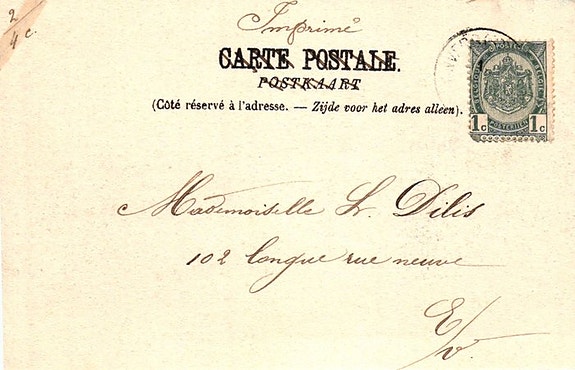 2/4 c.
Imprimé
CARTE POSTALE.
POSTKAART
(Côté réservé à l'adresse. — Zijde voor het adres alleen).
1c 1c
Mademoiselle L. Dilis
102 longue rue neuve
E/V.